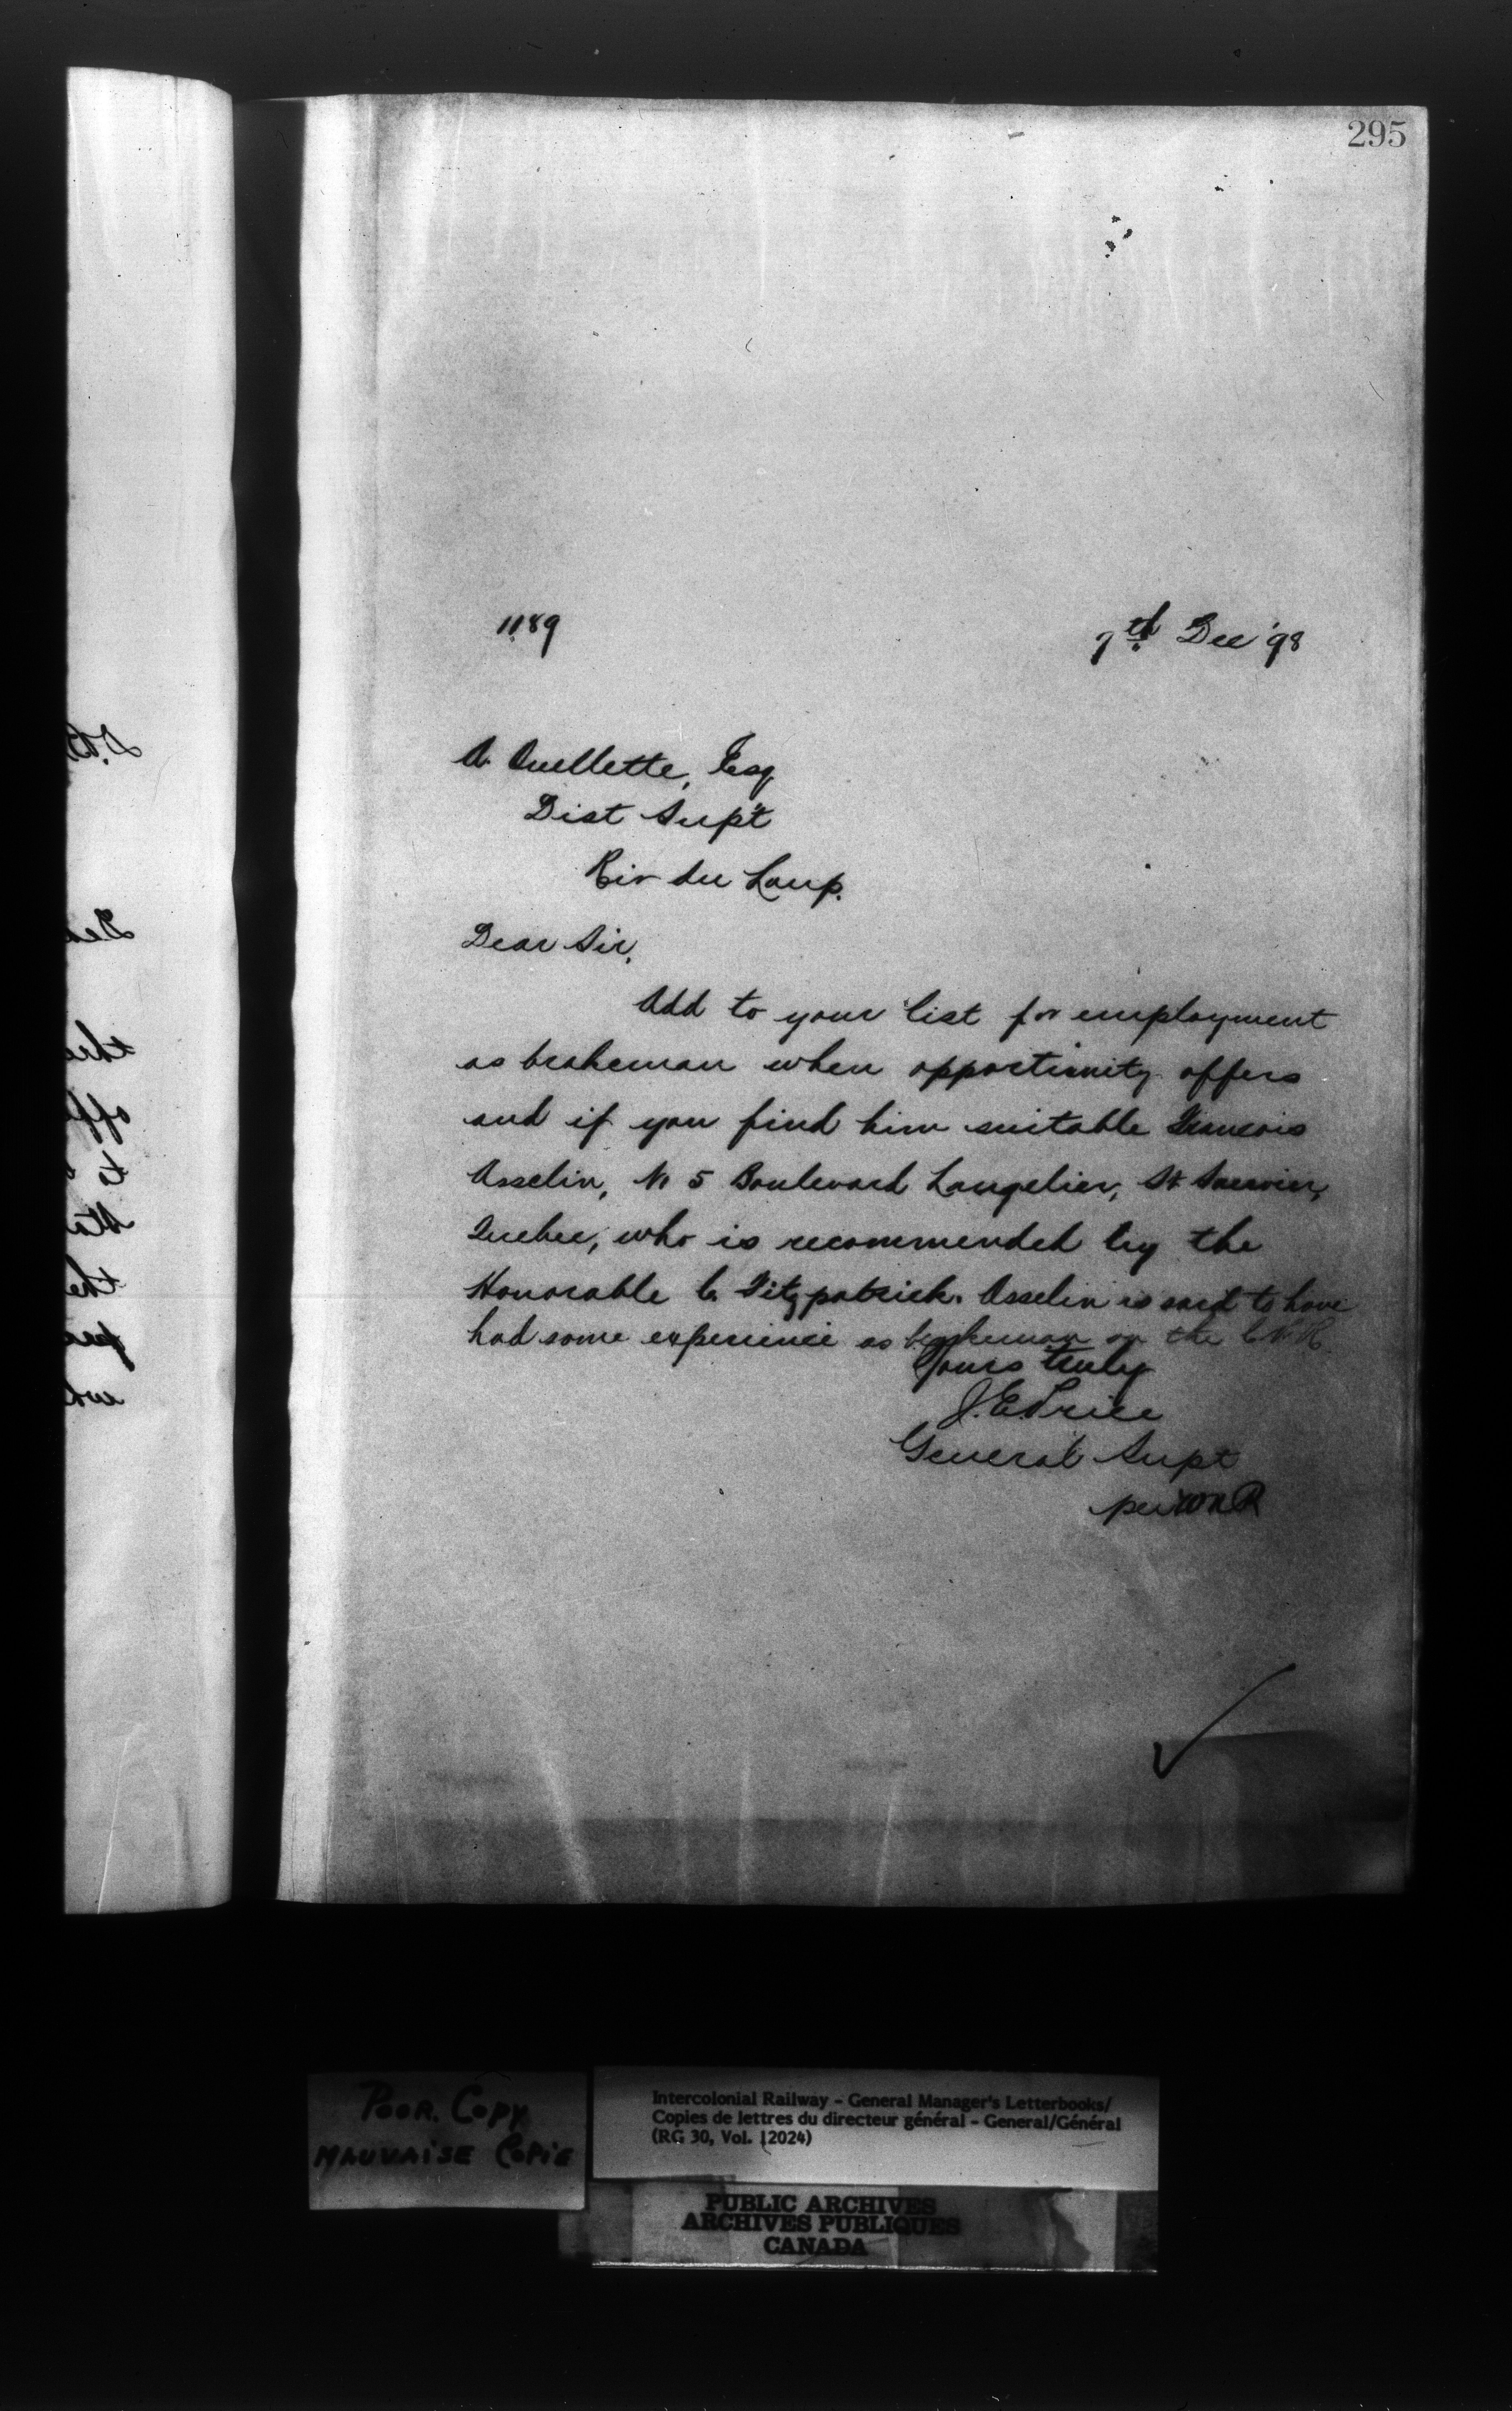 295
1189
7th Dec '98
A. Ouellette, Esq
Dist Sup't
Riv du Loup.
Dear Sir,
Add to your list for employment
as brakeman when opportunity offers
and if you find him suitable Francois
Asselin, No 5 Boulevard Langelier, St Sauvier,
Quebec, who is recommended by the
Honorable C. Fitzpatrick. Asselin is said to have
had some experience as brakeman on the C.P.R.
Yours truly
J.E. Price
General Supt
per WNR
POOR. COPY
MAUVAISE COPIE
Intercolonial Railway - General Manager's Letterbooks/
Copies de lettres du directeur général - General/Général
(RG 30, Vol. 12024)
PUBLIC ARCHIVES
ARCHIVES PUBLIQUES
CANADA